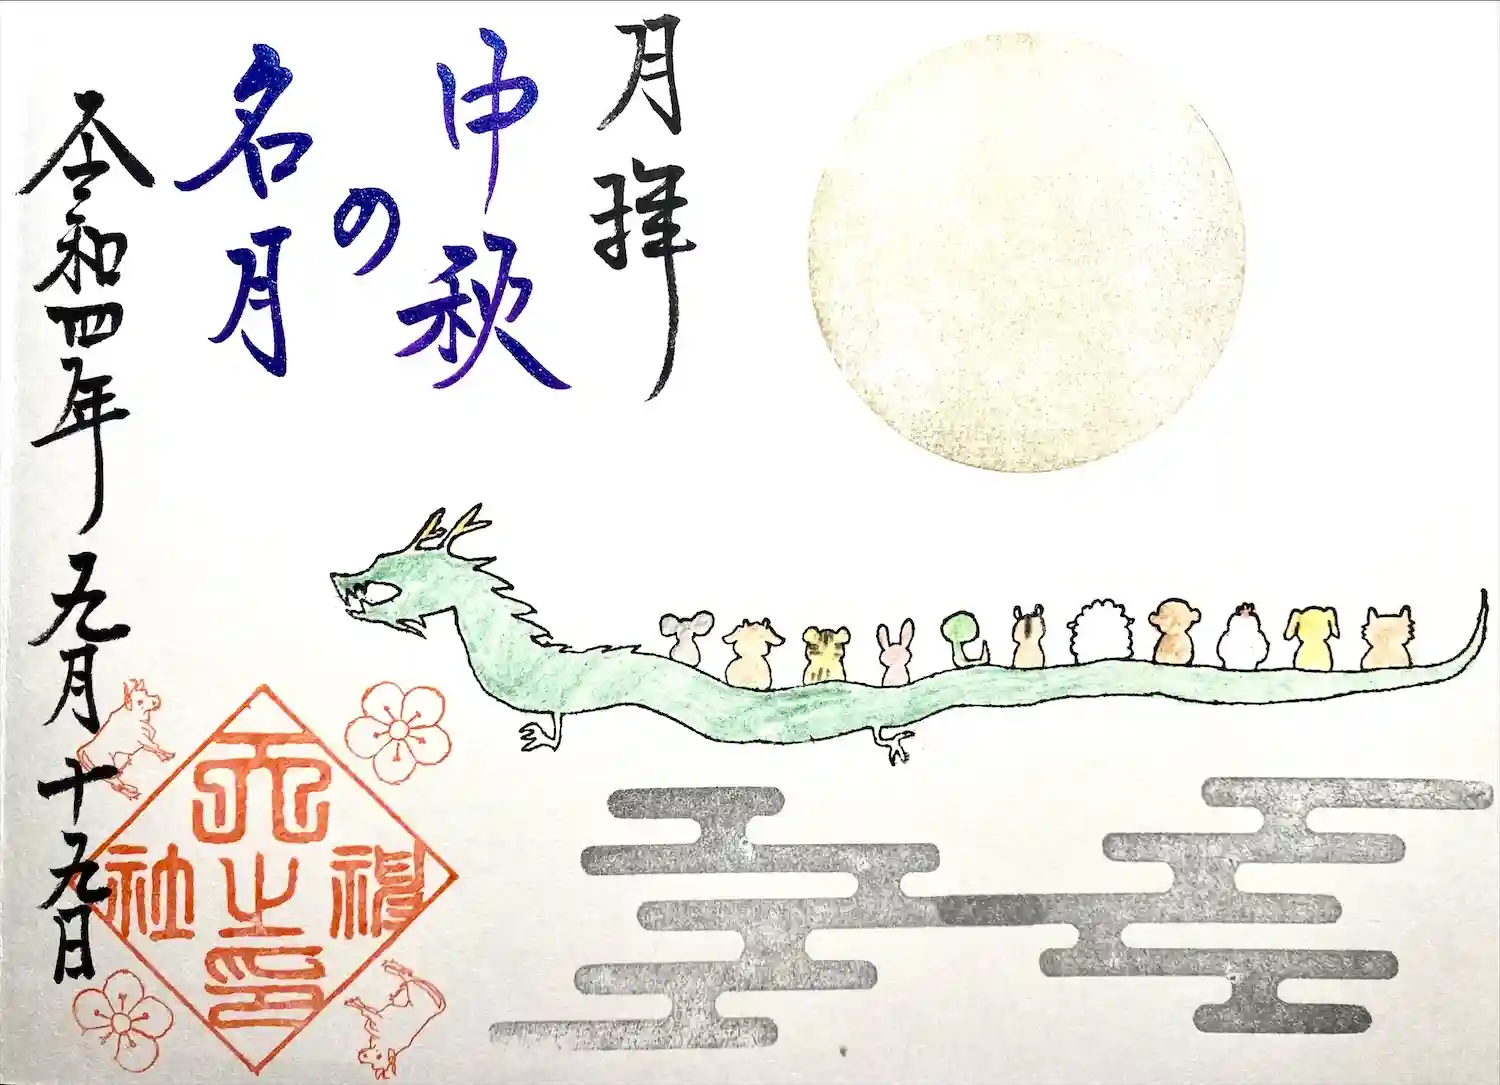 月拝
中秋
の
名月
令和四年 九月 十九日
天神社之印